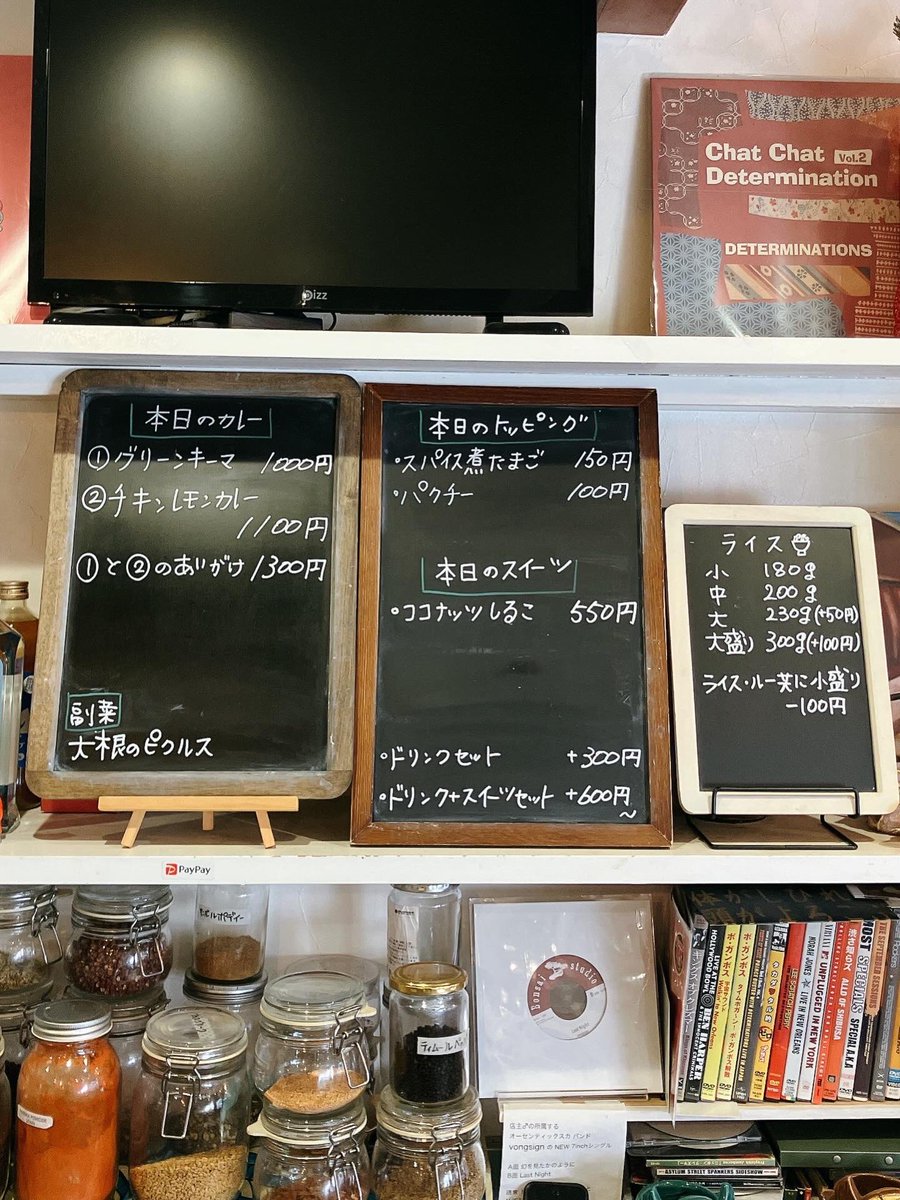 Dizz
Chat Chat Vol.2
Determination
DETERMINATIONS
本日のカレー
①グリーンキーマ 1000円
②チキンレモンカレー
1100円
①と②のあいがけ 1300円
副菜
大根のピクルス
本日のトッピング
・スパイス煮たまご 150円
・パクチー 100円
本日のスイーツ
・ココナッツしるこ 550円
・ドリンクセット +300円
・ドリンク+スイーツセット +600円~
ライス
小 180g
中 200g
大 230g(+50円)
大盛り 300g(+100円)
ライス・ルー共に小盛り
-100円
PayPay
ティムール
bonsai studio
Last Night
HOLLYWOOD BOWL
BEN HARPER
NORAH JONES LIVE IN NEW ORLEANS
UNPLUGGED IN NEW YORK
THE SPECIALS
SPECIAL A.K.A
店主♂の所属する
オーセンティックスカ バンド
vongsign の NEW 7inchシングル
A面 幻を見たかのように
B面 Last Night
ASYLUM STREET SPANKERS SIDESHOW